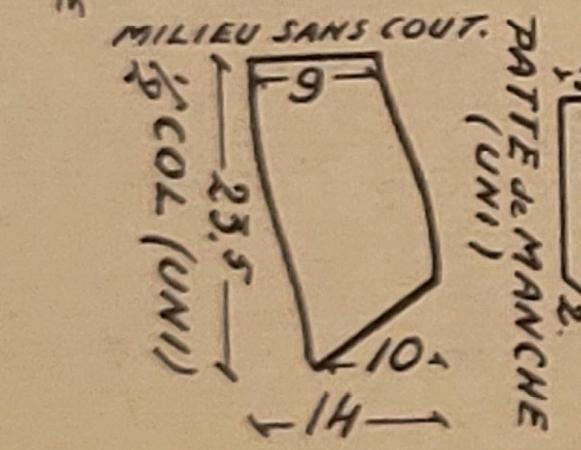 MILIEU SANS COUT.
9
23.5
½ COL (UNI)
10
14
PATTE de MANCHE
(UNI)
2.